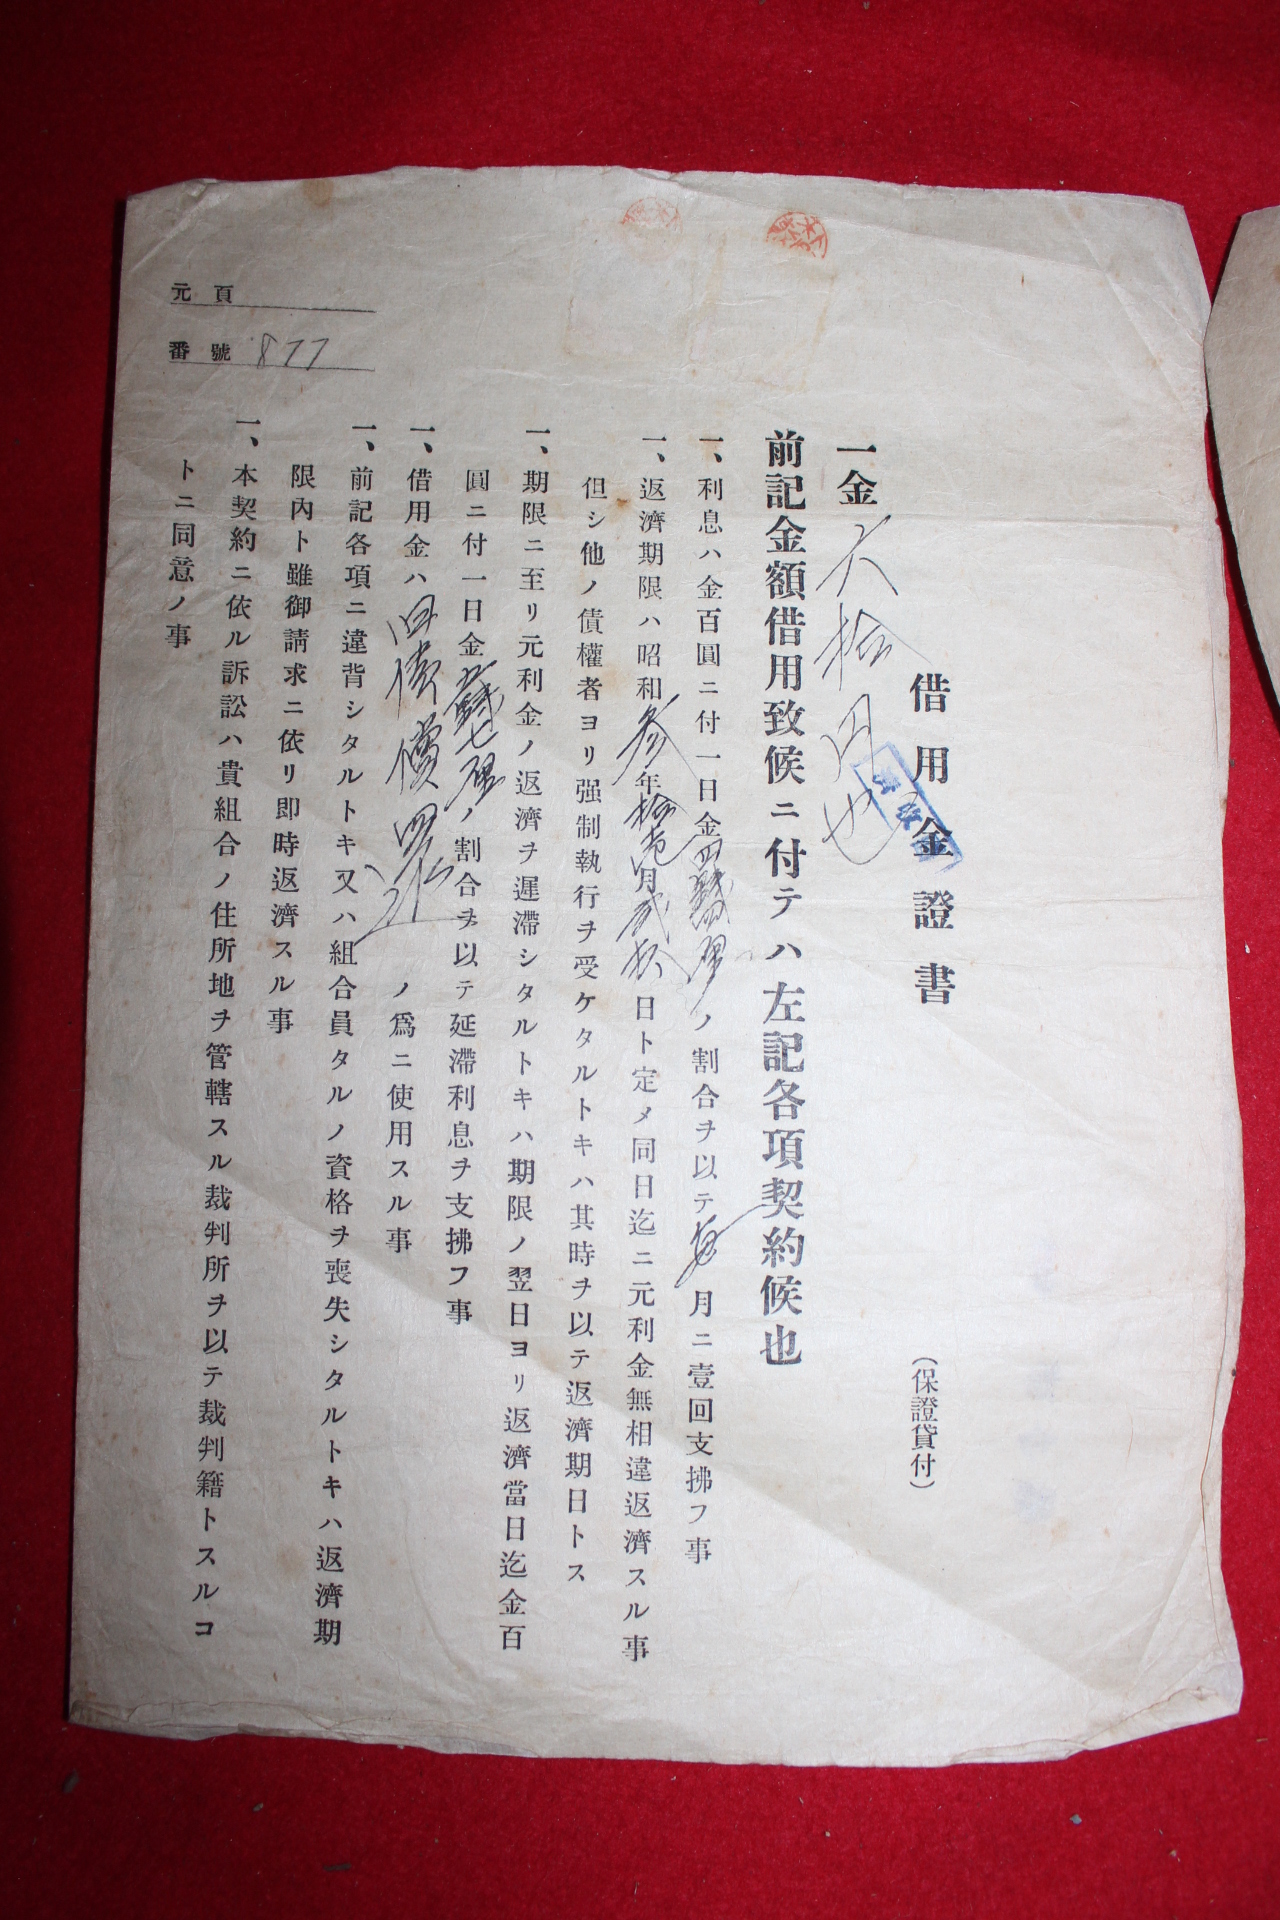 借用金證書
(保證貸付)
一金六拾円也
前記金額借用致候ニ付テハ左記各項契約候也
一、利息ハ金百圓ニ付一日金四錢四厘ノ割合ヲ以テ每月ニ壹回支拂フ事
一、返濟期限ハ昭和參年拾壱月貳拾日ト定メ同日迄ニ元利金無相違返濟スル事
但シ他ノ債權者ヨリ强制執行ヲ受ケタルトキハ其時ヲ以テ返濟期日トス
一、期限ニ至リ元利金ノ返濟ヲ遲滯シタルトキハ期限ノ翌日ヨリ返濟當日迄金百
圓ニ付一日金五錢七厘ノ割合ヲ以テ延滯利息ヲ支拂フ事
一、借用金ハ旧債償却ノ爲ニ使用スル事
一、前記各項ニ違背シタルトキ又ハ組合員タルノ資格ヲ喪失シタルトキハ返濟期
限內ト雖御請求ニ依リ即時返濟スル事
一、本契約ニ依ル訴訟ハ貴組合ノ住所地ヲ管轄スル裁判所ヲ以テ裁判籍トスルコ
トニ同意ノ事
元頁
番號 877